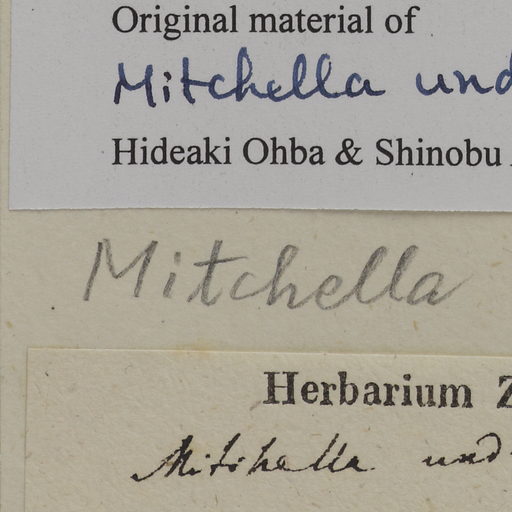 Original material of
Mitchella und
Hideaki Ohba & Shinobu
Mitchella
Herbarium Z
Mitchella und